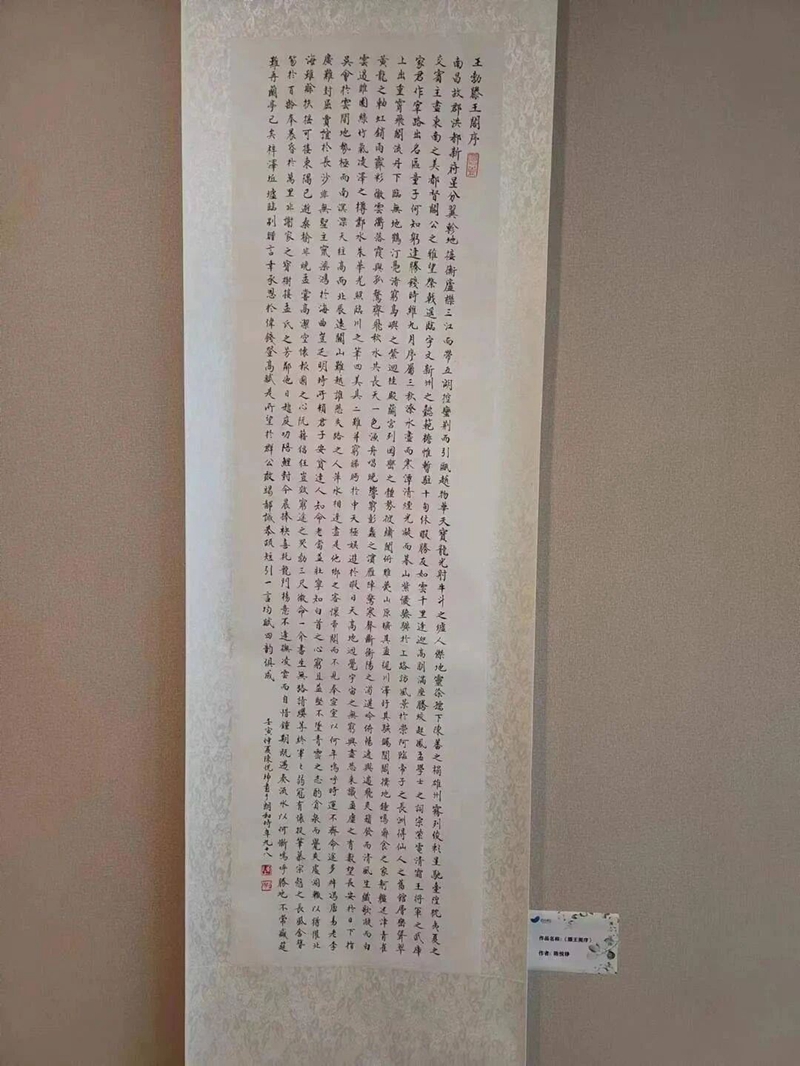 王勃滕王閣序
南昌故郡洪都新府星分翼軫地接衡廬襟三江而帶五湖控蠻荊而引甌越物華天寶龍光射牛斗之墟人傑地靈徐孺下陳蕃之榻雄州霧列俊彩星馳臺隍枕夷夏之
交賓主盡東南之美都督閻公之雅望棨戟遙臨宇文新州之懿範襜帷暫駐十旬休暇勝友如雲千里逢迎高朋滿座騰蛟起鳳孟學士之詞宗紫電清霜王將軍之武庫
家君作宰路出名區童子何知躬逢勝餞時維九月序屬三秋潦水盡而寒潭清煙光凝而暮山紫儼驂騑於上路訪風景於崇阿臨帝子之長洲得仙人之舊館層巒聳翠
上出重霄飛閣流丹下臨無地鶴汀鳧渚窮島嶼之縈迴桂殿蘭宮列岡巒之體勢披繡闥俯雕甍山原曠其盈視川澤紆其駭矚閭閻撲地鐘鳴鼎食之家舸艦迷津青雀
黃龍之軸虹銷雨霽彩徹雲衢落霞與孤鶩齊飛秋水共長天一色漁舟唱晚響窮彭蠡之濱雁陣驚寒聲斷衡陽之浦遙吟俯暢逸興遄飛爽籟發而清風生纖歌凝而白
雲遏睢園綠竹氣凌澤之樽鄴水朱華光照臨川之筆四美具二難并窮睇眄於中天極娛遊於暇日天高地迥覺宇宙之無窮興盡悲來識盈虛之有數望長安於日下指
吳會於雲間地勢極而南溟深天柱高而北辰遠關山難越誰悲失路之人萍水相逢盡是他鄉之客懷帝閽而不見奉宣室以何年嗚呼時運不齊命途多舛馮唐易老李
廣難封屈賈誼於長沙非無聖主竄梁鴻於海曲豈乏明時所賴君子安貧達人知命老當益壯寧知白首之心窮且益堅不墜青雲之志酌貪泉而覺爽處涸轍以猶懽北
海雖賒扶搖可接東隅已逝桑榆非晚孟嘗高潔空懷報國之心阮藉猖狂豈效窮途之哭勃三尺微命一介書生無路請纓等終軍之弱冠有懷投筆慕宗愨之長風舍簪
笏於百齡奉晨昏於萬里非謝家之寶樹接孟氏之芳鄰他日趨庭叨陪鯉對今晨捧袂喜託龍門楊意不逢撫凌雲而自惜鍾期既遇奏流水以何慚嗚呼勝地不常盛筵
難再蘭亭已矣梓澤坵墟臨別贈言幸承恩於偉餞登高賦是所望於群公敢竭鄙誠恭疏短引一言均賦四韻俱成
壬寅仲夏陳 書 時年九十八
作品名称：《滕王阁序》
作者：陈